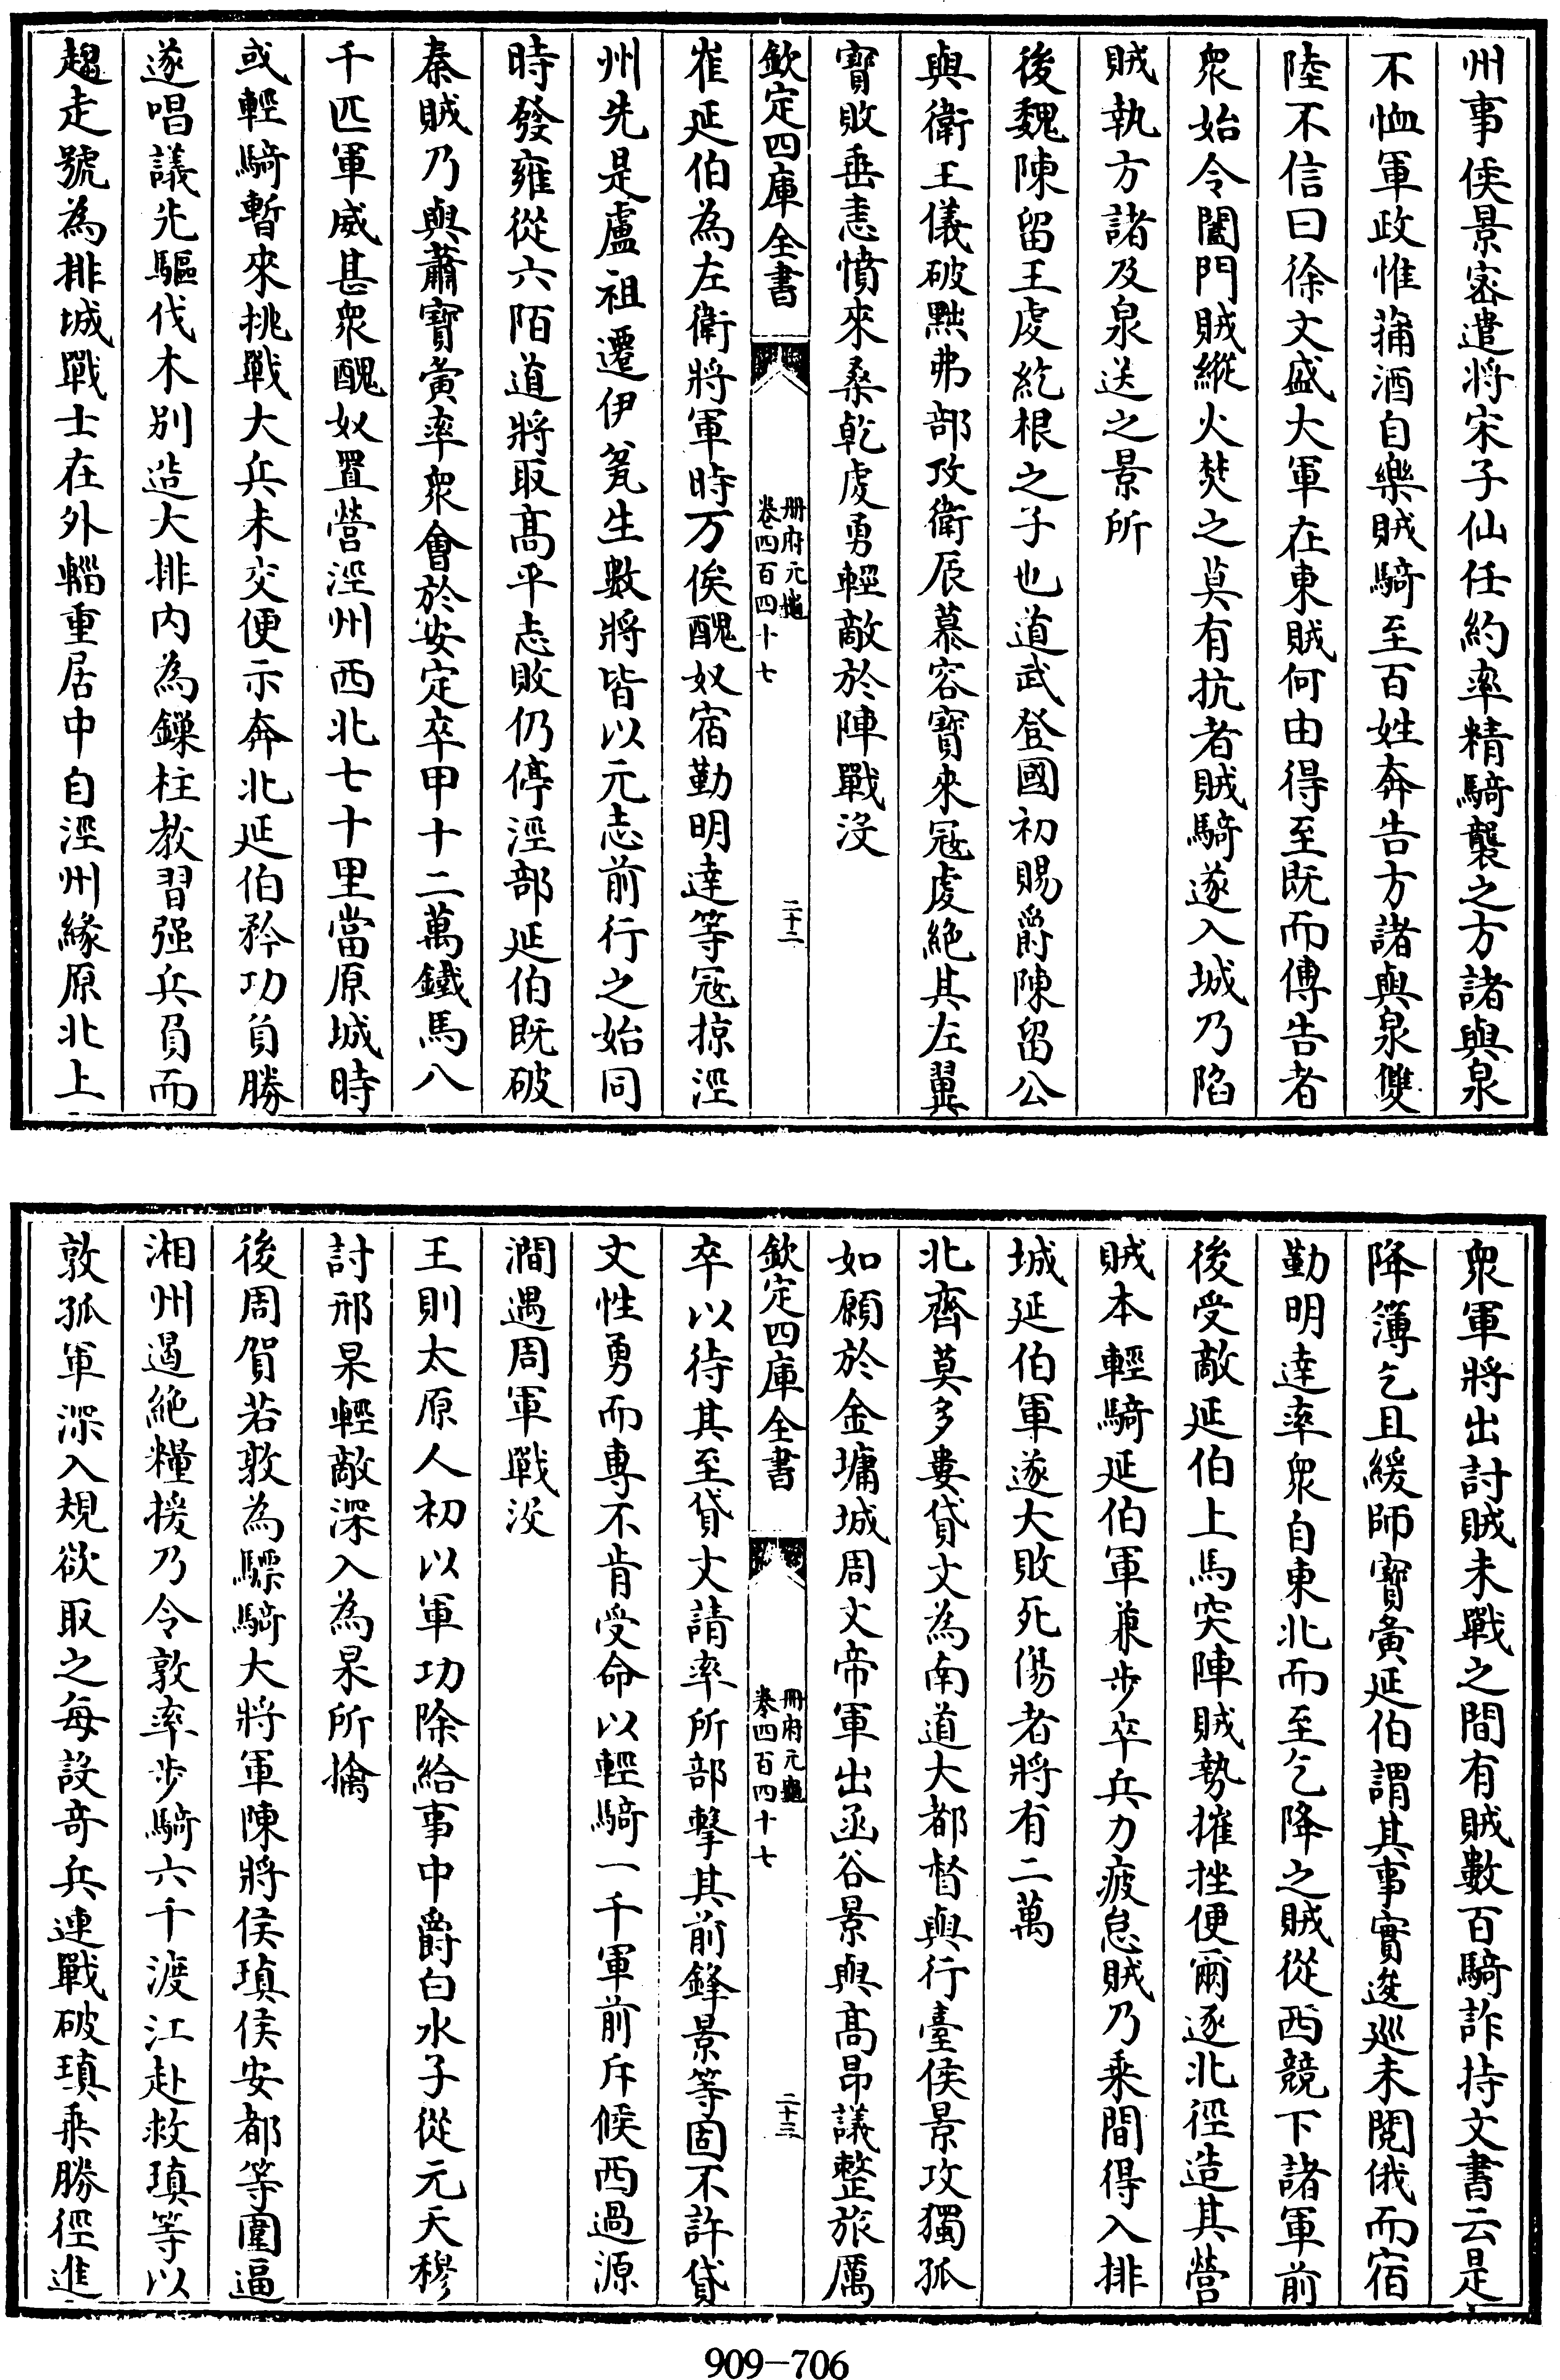 州事侯景密遣將宋子仙任約率精騎襲之方諸與泉
不恤軍政惟蒲酒自樂賊騎至百姓奔告方諸與泉雙
陸不信曰徐文盛大軍在東賊何由得至既而傳告者
衆始令闔門賊縱火焚之莫有抗者賊騎遂入城乃陷
賊執方諸及泉送之景所
後魏陳留王虔紇根之子也道武登國初賜爵陳留公
與衛王儀破黜弗部攻衛辰慕容寶來冦虔絶其左翼
寶敗垂恚憤來桑乾虔勇輕敵於陣戰沒
欽定四庫全書
冊府元龜
卷四百四十七
二十二
崔延伯為左衛將軍時万俟醜奴宿勤明達等冦掠涇
州先是盧祖遷伊瓮生數將皆以元志前行之始同
時發雍從六陌道將取髙平志敗仍停涇部延伯既破
秦賊乃與蕭寶夤率衆會於安定卒甲十二萬鐵馬八
千匹軍威甚衆醜奴置營涇州西北七十里當原城時
或輕騎暫來挑戰大兵未交便示奔北延伯矜功負勝
遂唱議先驅伐木别造大排内為鏁柱教習强兵負而
趨走號為排城戰士在外輜重居中自涇州緣原北上
衆軍將出討賊未戰之間有賊數百騎詐持文書云是
降簿乞且緩師寶夤延伯謂其事實逡巡未閲俄而宿
勤明達率衆自東北而至乞降之賊從西競下諸軍前
後受敵延伯上馬突陣賊勢摧挫便爾逐北徑造其營
賊本輕騎延伯軍兼步卒兵力疲怠賊乃乗間得入排
城延伯軍遂大敗死傷者將有二萬
北齊莫多婁貸文為南道大都督與行臺侯景攻獨孤
如願於金墉城周文帝軍出函谷景與髙昂議整旅厲
欽定四庫全書
冊府元龜
卷四百四十七
二十三
卒以待其至貸文請率所部擊其前鋒景等固不許貸
文性勇而專不肯受命以輕騎一千軍前斥候西過源
澗遇周軍戰沒
王則太原人初以軍功除給事中爵白水子從元天穆
討邢杲輕敵深入為杲所擒
後周賀若敦為驃騎大將軍陳將侯瑱侯安都等圍逼
湘州遏絶糧援乃令敦率步騎六千渡江赴救瑱等以
敦孤軍深入規欲取之每設奇兵連戰破瑱乗勝徑進
909-706